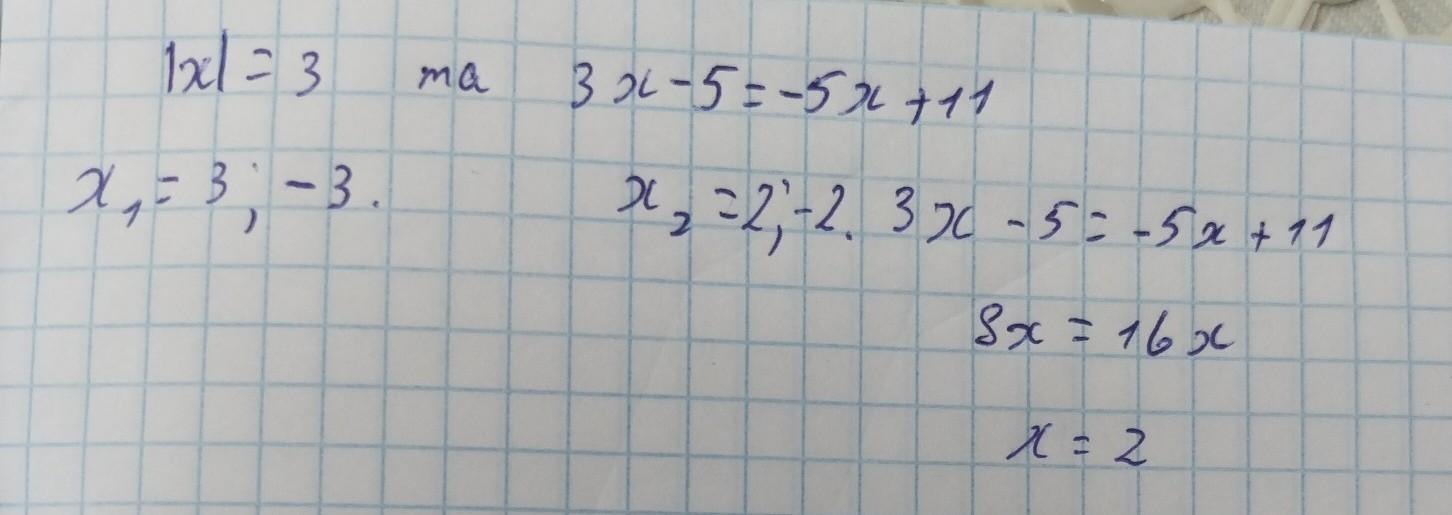 |x| = 3 та 3x - 5 = -5x + 11
x₁ = 3; -3. x₂ = 2; -2. 3x - 5 = -5x + 11
8x = 16x
x = 2